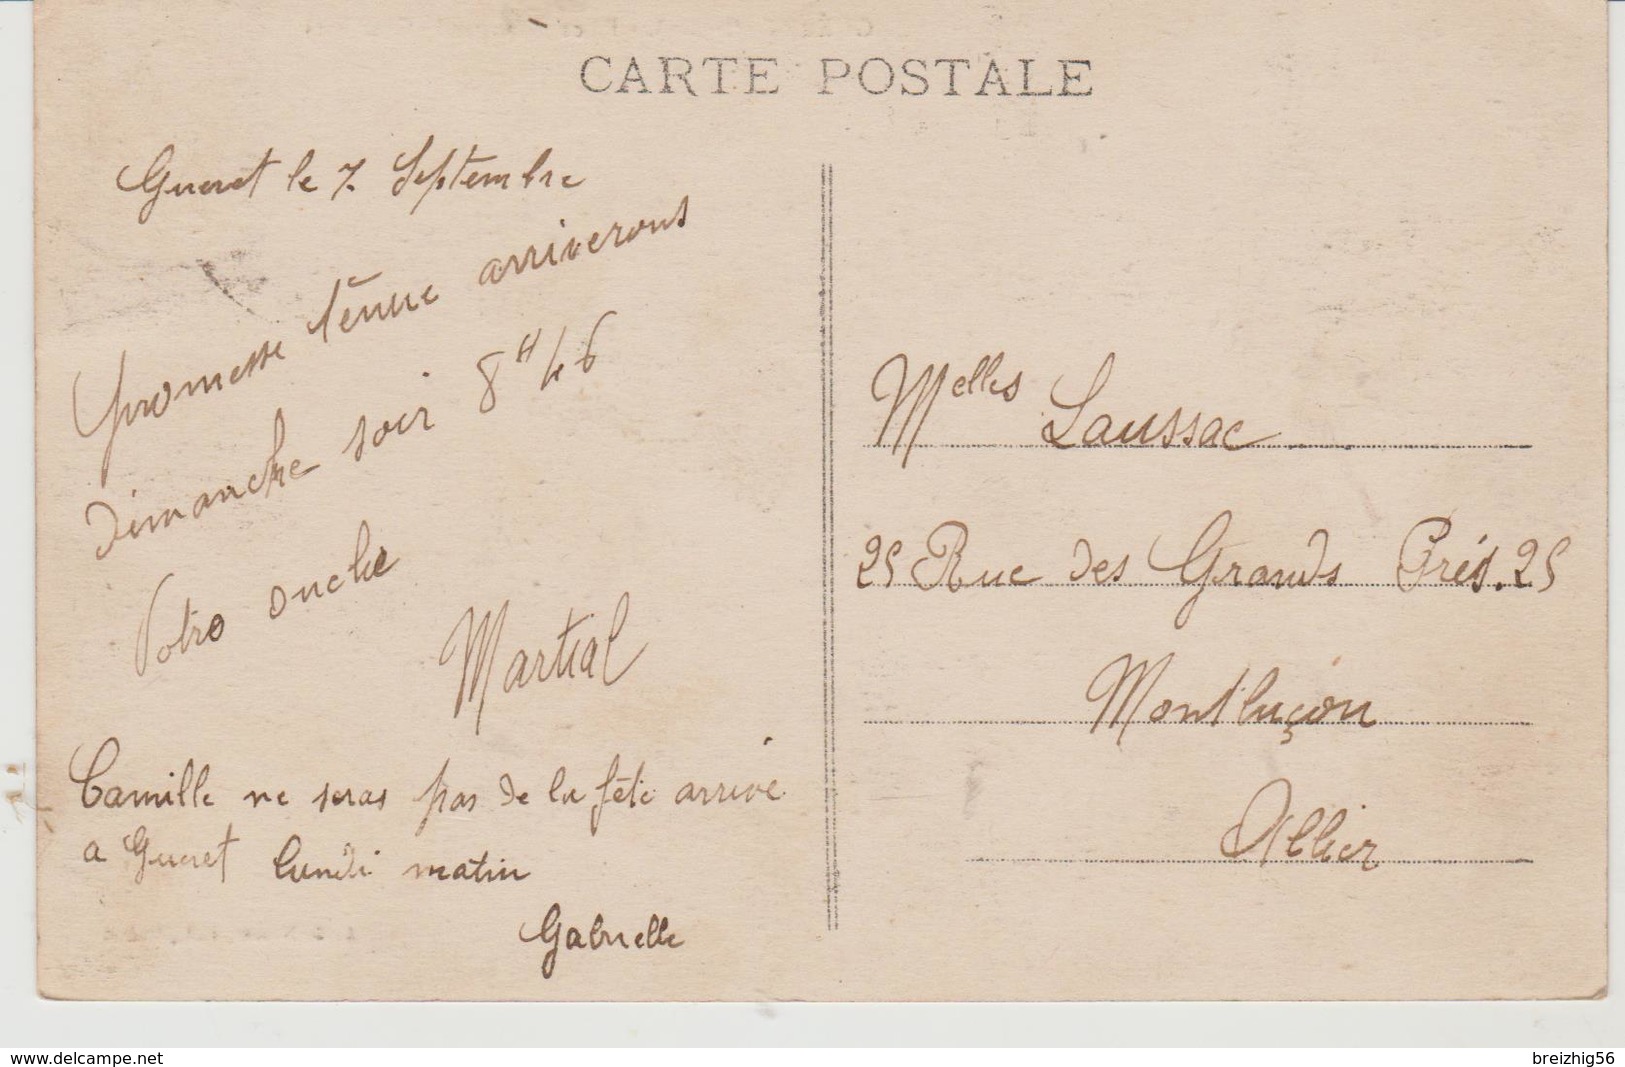 CARTE POSTALE
Gueret le 7. Septembre
promesse tenue arriverons
dimanche soir 8H46
Votre oncle
Martial
Camille ne seras pas de la fête arrive
a Gueret lundi matin
Gabrielle
Melles Laussac
25 Rue des Grands Prés. 25
Montluçon
Allier
www.delcampe.net
breizhig56